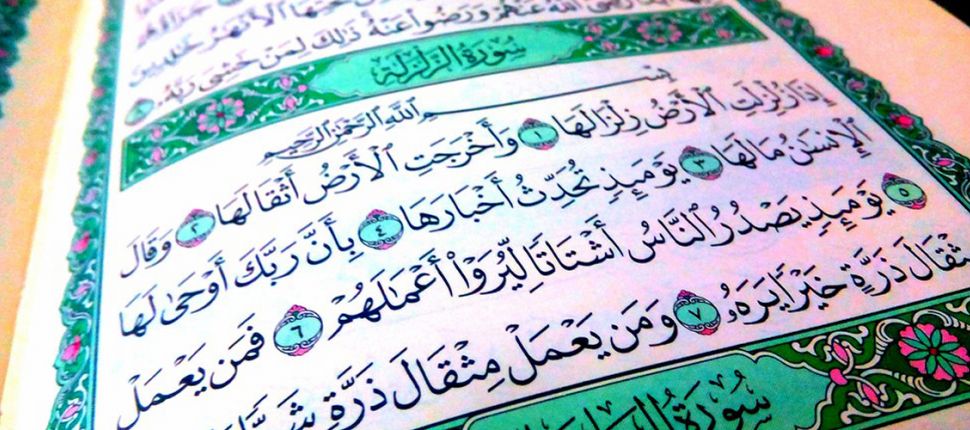 تَحْتِهَا الْأَنْهَٰرُ خَٰلِدِينَ
رَّضِىَ اللَّهُ عَنْهُمْ وَرَضُوا۟ عَنْهُ ذَٰلِكَ لِمَنْ خَشِىَ رَبَّهُۥ
سُورَةُ الزَّلْزَلَةِ
بِسْمِ اللَّهِ الرَّحْمَٰنِ الرَّحِيمِ
إِذَا زُلْزِلَتِ الْأَرْضُ زِلْزَالَهَا ١ وَأَخْرَجَتِ الْأَرْضُ أَثْقَالَهَا ٢ وَقَالَ
الْإِنسَٰنُ مَالَهَا ٣ يَوْمَئِذٍ تُحَدِّثُ أَخْبَارَهَا ٤ بِأَنَّ رَبَّكَ أَوْحَىٰ لَهَا
٥ يَوْمَئِذٍ يَصْدُرُ النَّاسُ أَشْتَاتًا لِّيُرَوْا۟ أَعْمَٰلَهُمْ ٦ فَمَن يَعْمَلْ
مِثْقَالَ ذَرَّةٍ خَيْرًا يَرَهُۥ ٧ وَمَن يَعْمَلْ مِثْقَالَ ذَرَّةٍ
سُورَةُ